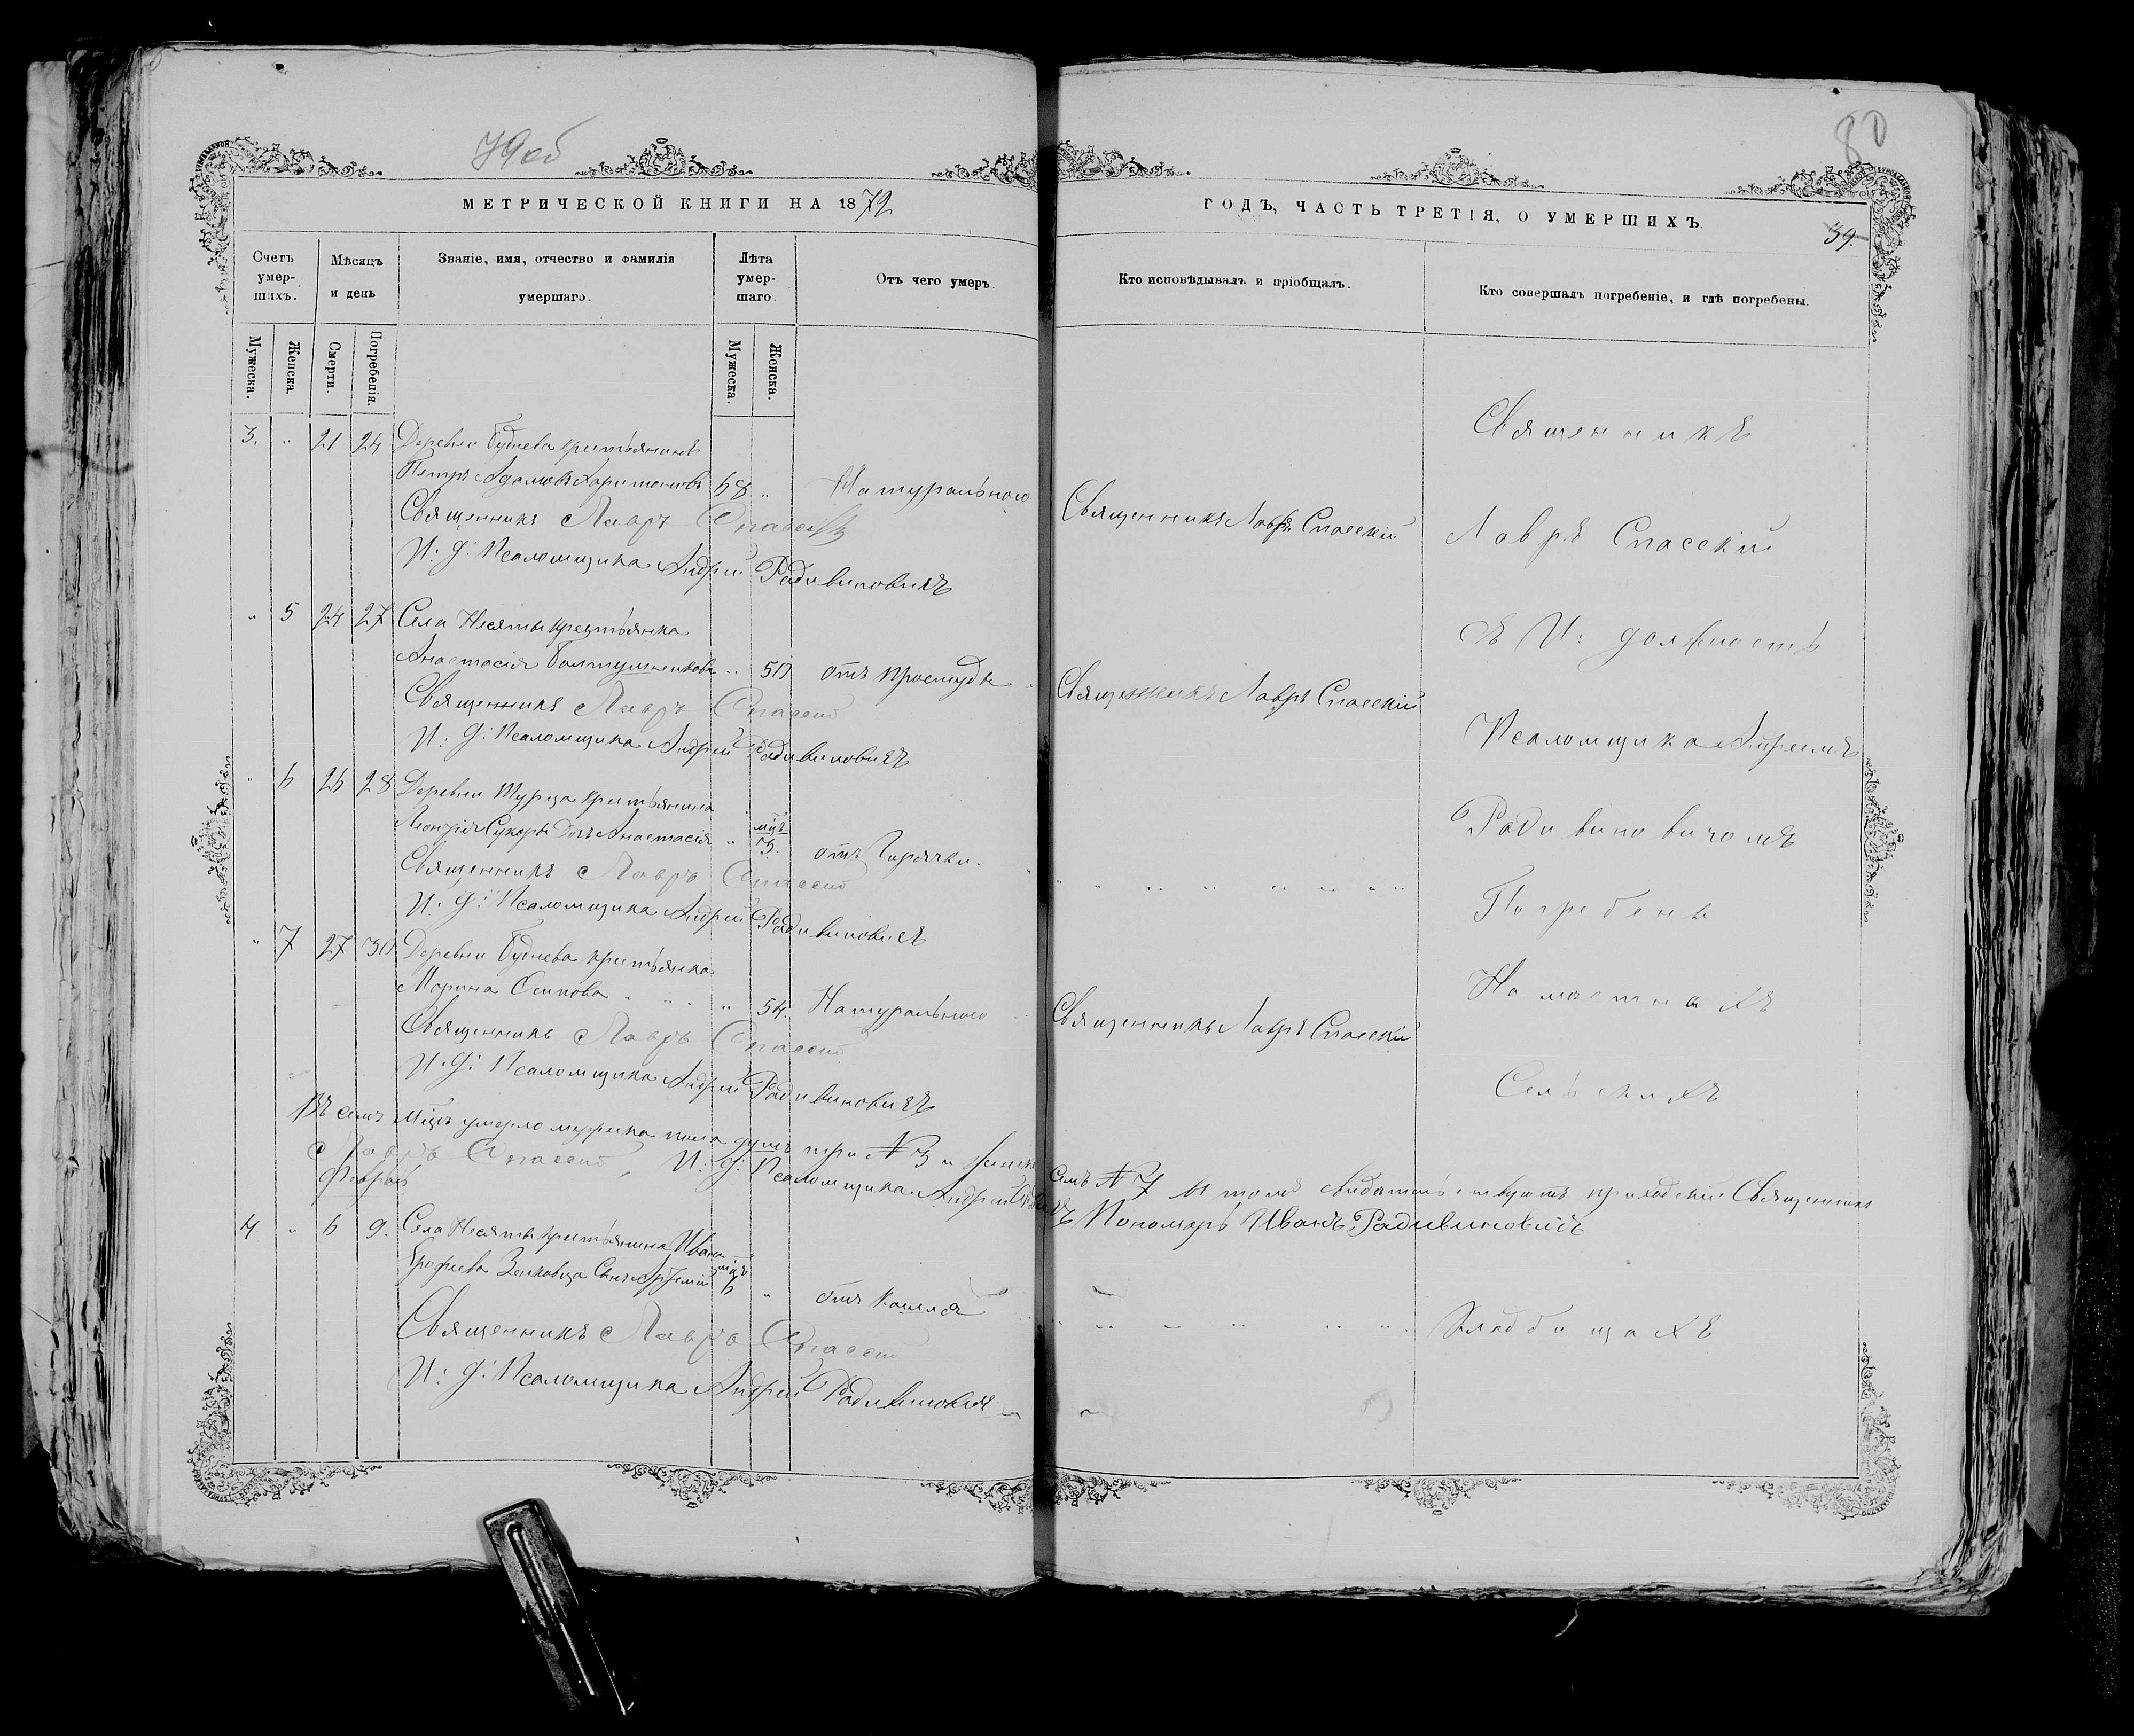 79об
80
МЕТРИЧЕСКОЙ КНИГИ НА 1872
ГОДЪ, ЧАСТЬ ТРЕТІЯ, О УМЕРШИХЪ.
39.
Счетъ умер-шихъ.
Мѣсяцъ и день
Званіе, имя, отчество и фамилія умершаго.
Лѣта умер-шаго.
Отъ чего умеръ.
Кто исповѣдывалъ и пріобщалъ.
Кто совершалъ погребеніе, и гдѣ погребены.
Мужеска.
Женска.
Смерти.
Погребенія.
Мужеска.
Женска.
3. " 21 24 Деревни Буднева крестьянинъ
Петръ Адамовъ Харитоновъ 68 " Натурального
Священникъ Лавръ Спасскій
Священникъ Лавръ Спасскій
И: д: Псаломщика Андрей Радивиновичъ
" 5 24 27 Села Несяты крестьянка
Анастасія " 50 отъ простуды
Священникъ Лавръ Спасскій
Священникъ Лавръ Спасскій
И: д: Псаломщика Андрей Радивиновичъ
" 6 26 28 Деревни Турца крестьянина
Леонтія Сукоры Дочь Анастасія " мцъ 3. отъ Горячки.
Священникъ Лавръ Спасскій
И: д: Псаломщика Андрей Радивиновичъ
" 7 27 30 Деревни Буднева крестьянка
Марина Осипова " 54. Натурального
Священникъ Лавръ Спасскій
Священникъ Лавръ Спасскій
И: д: Псаломщика Андрей Радивиновичъ
Въ семъ мцѣ умерло мужеска пола душъ три № 3 и женска
Семь № 7 И томъ свидѣтельствуютъ приходскій Священникъ
Лавръ Спасскій, И: д: Псаломщика Андрей
Пономарь Иванъ Радивиновичъ
Февраль
4 " 6 9. Села Несяты крестьянина Ивана
Ерофеева Сынъ Артемій мцъ 6 " отъ Кашля
Священникъ Лавръ Спасскій
И: д: Псаломщика Андрей Радивиновичъ
Священникъ
Лавръ Спасскій
съ И: должность
Псаломщика Андреемъ
Радивиновичомъ
Погребены
На мѣстныхъ
Сельскихъ
Кладбищахъ